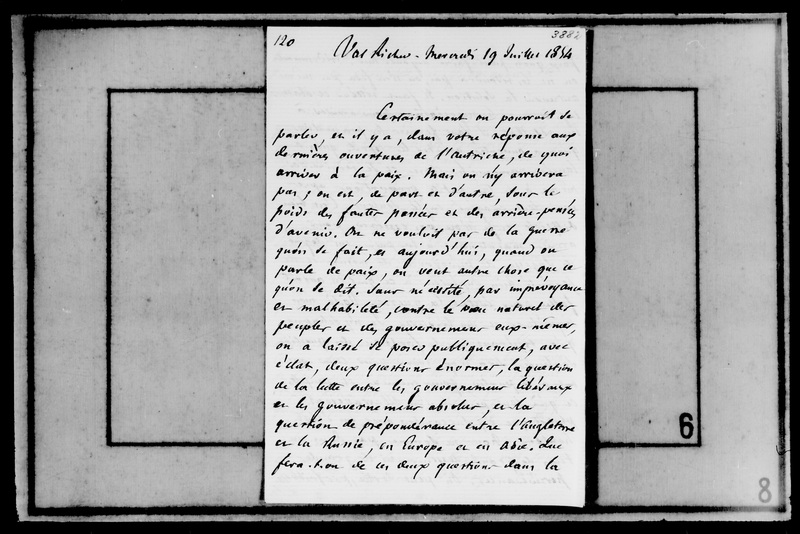 120
3882
Val Richer - Mercredi 19 Juillet 1854
Certainement on pourroit se
parler, et il y a, dans votre réponse aux
dernières ouvertures de l'Autriche, de quoi
arriver à la paix. Mais on n'y arrivera
pas ; on est, de part et d'autre, sous le
poids des fautes passées et des arrière-pensées
d'avenir. On ne vouloit pas de la guerre
qu'on se fait, et aujourd'hui, quand on
parle de paix, on veut autre chose que ce
qu'on se dit. Sans nécessité, par imprévoyance
et malhabileté, contre le vœu naturel des
peuples et des gouvernemens eux-mêmes,
on a laissé se poser publiquement, avec
éclat, deux questions énormes, la question
de la lutte entre les gouvernemens libéraux
et les gouvernemens absolus, et la
question de prépondérance entre l'Angleterre
et la Russie, en Europe et en Asie. Que
fera-t-on de ces deux questions dans la
6
8